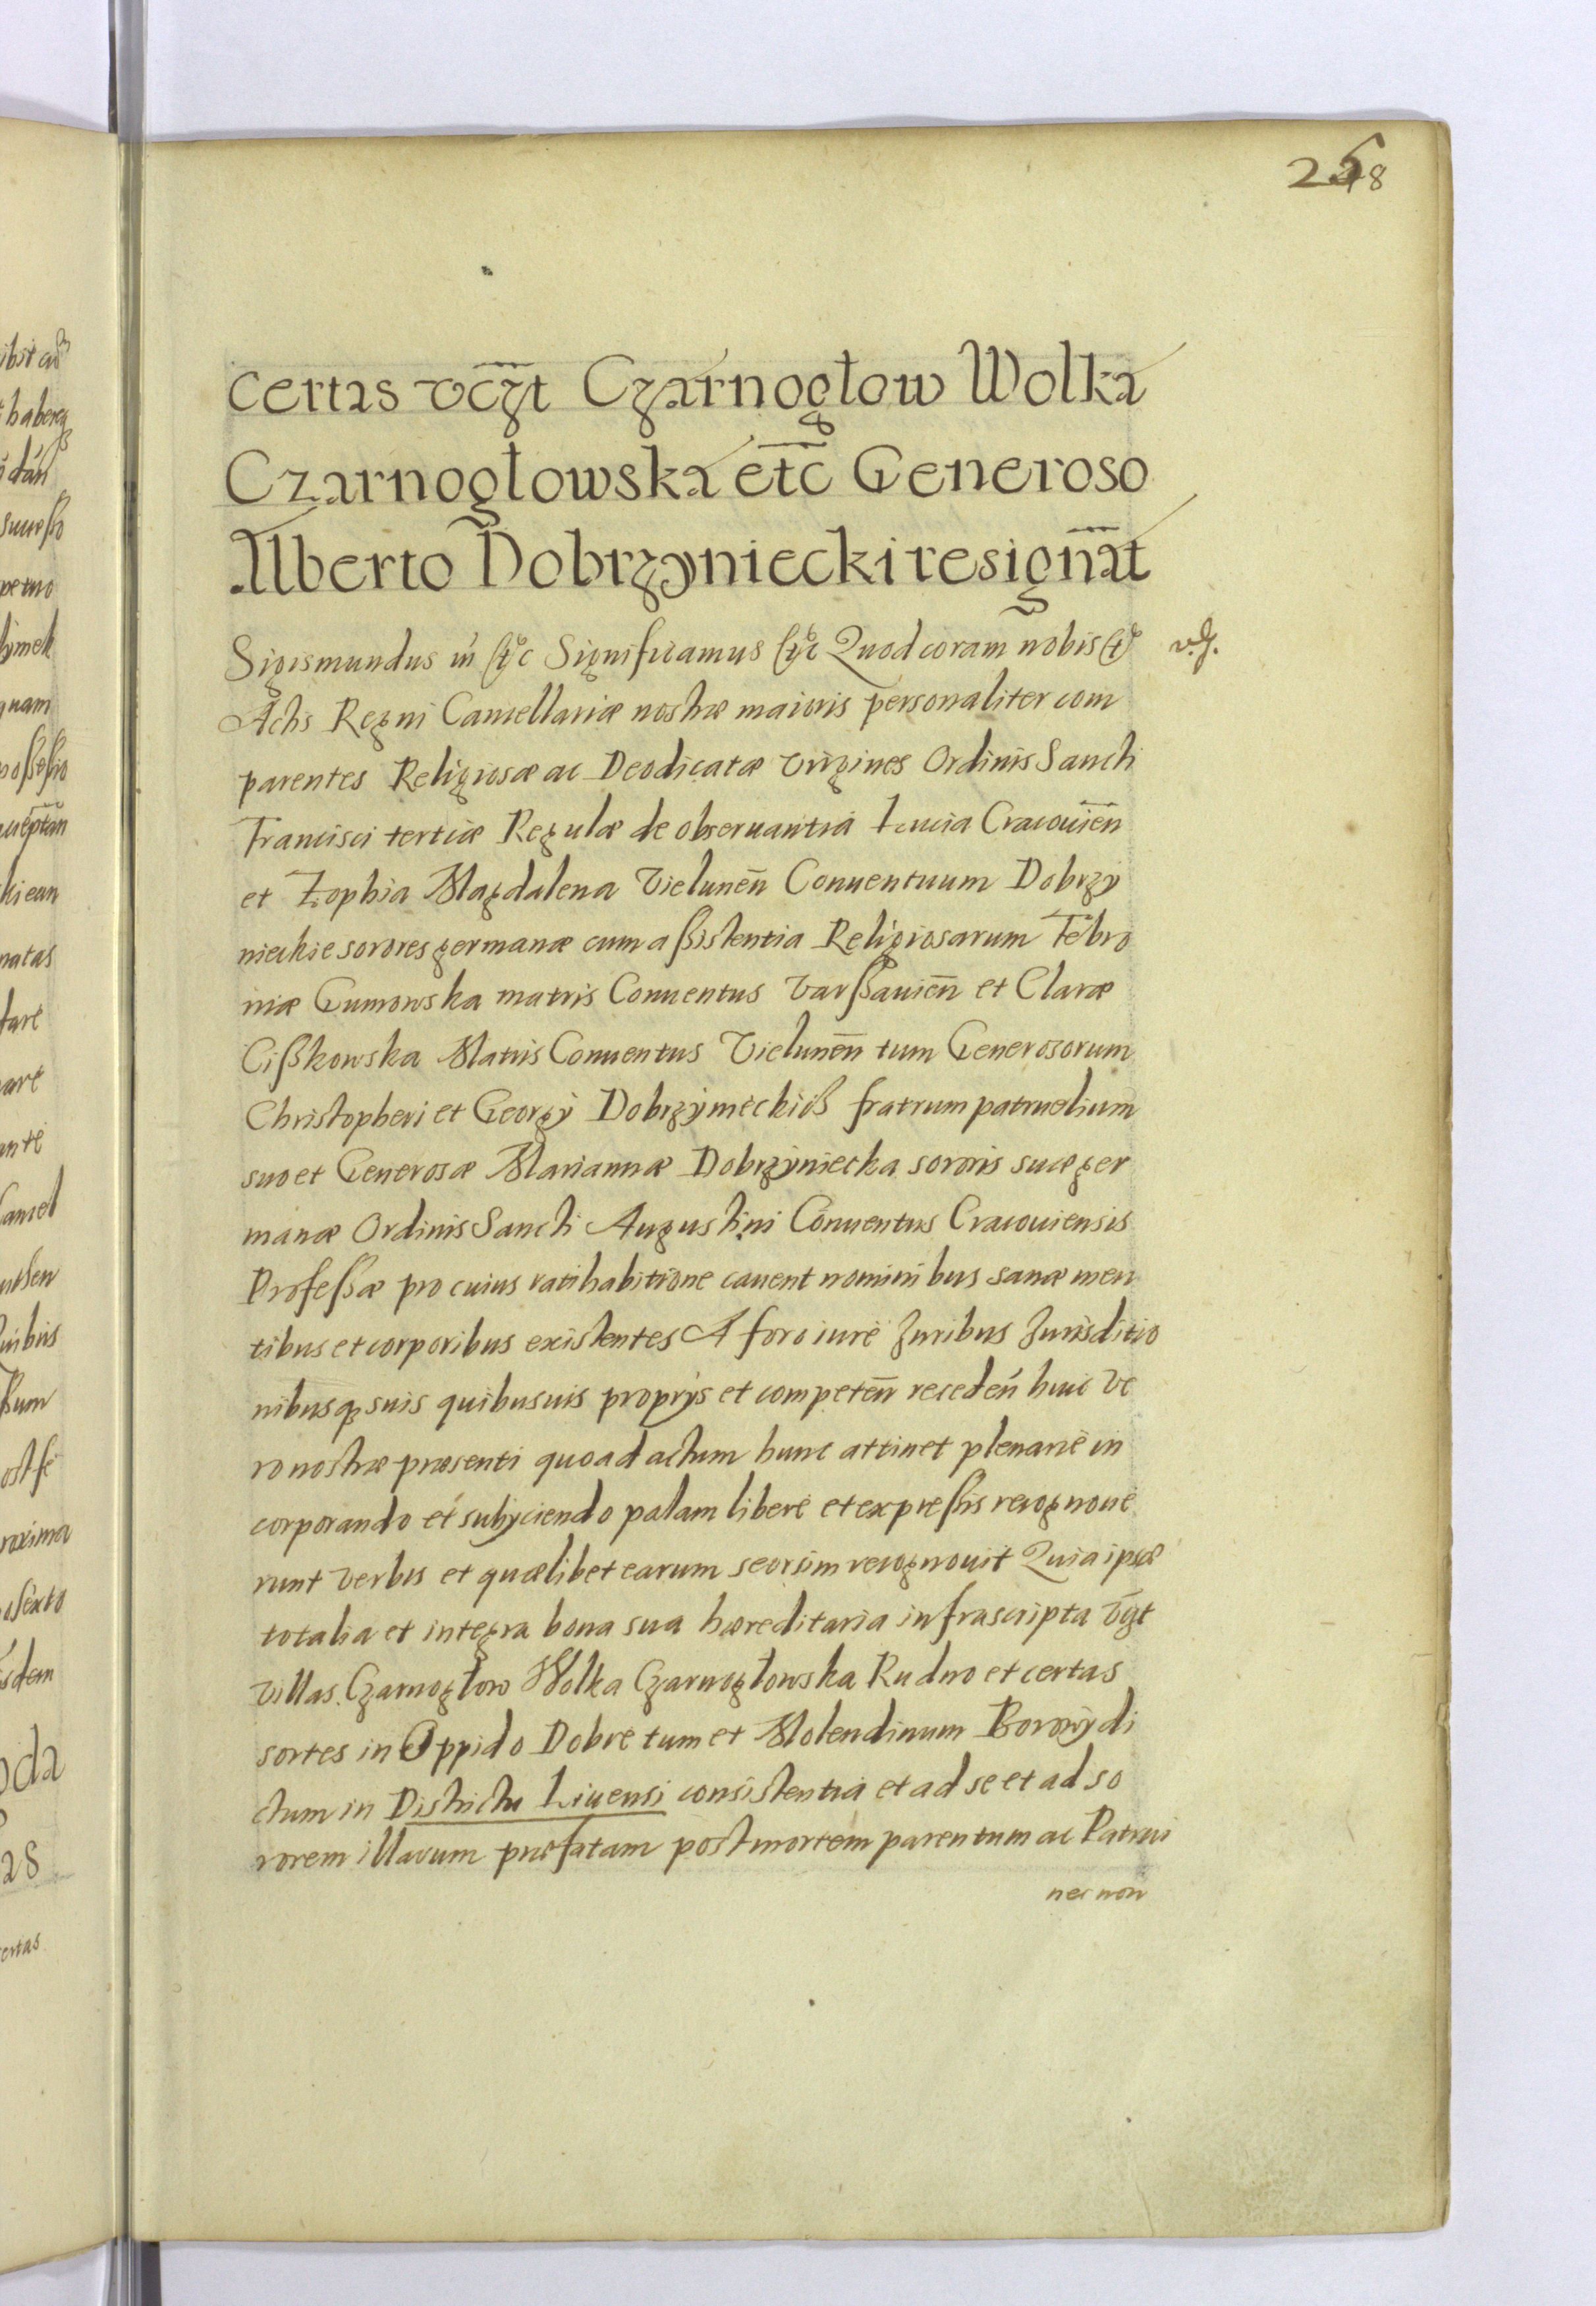 258
certas vczt Czarnogłow Wolka
Czarnogłowska etc Generoso
Alberto Dobrzyniecki resignāt
Sigismundus iii etc Significamus etc Quod coram nobis et
Actis Regni Cancellariæ nostræ maioris personaliter com
parentes Religiosæ ac Deodicatæ virgines Ordinis Sancti
Francisci tertiæ Regulæ de obseruantia Lucia Cracouien̄
et Zophia Magdalena Vielunen̄ Conuentuum Dobrzy
nieckie sorores germanæ cum aßistentia Religiosarum Febro
niæ Gumowska matris Conuentus Varßauien̄ et Claræ
Cißkowska Matris Conuentus Vielunen̄ tum Generosorum
Christopheri et Georgÿ Dobrzÿnieckich fratrum patruelium
suo et Generosæ Mariannæ Dobrzÿniecka sororis suæ ger
manæ Ordinis Sancti Augustini Conuentus Cracouiensis
Profeßæ pro cuius ratihabitione cauent nominibus sanæ men
tibus et corporibus existentes A foro iure Juribus Jurisditio
nibusq suis quibusuis proprÿs et competen̄ receden̄ huic ve
ro nostræ præsenti quoad actum hunc attinet plenarie in
corporando et subÿciendo palam libere et expreßis recognoue
runt verbis et quælibet earum seorsim recognouit Quia ipsæ
totalia et integra bona sua hæreditaria infrascripta vgt
villas Czarnogłow Wolka Czarnogłowska Rudno et certas
sortes in Oppido Dobre tum et Molendinum Borowÿ di
ctum in Districtu Liuensi consistentia et ad se et ad so
rorem illarum præfatam post mortem parentum ac Patrui
nec non